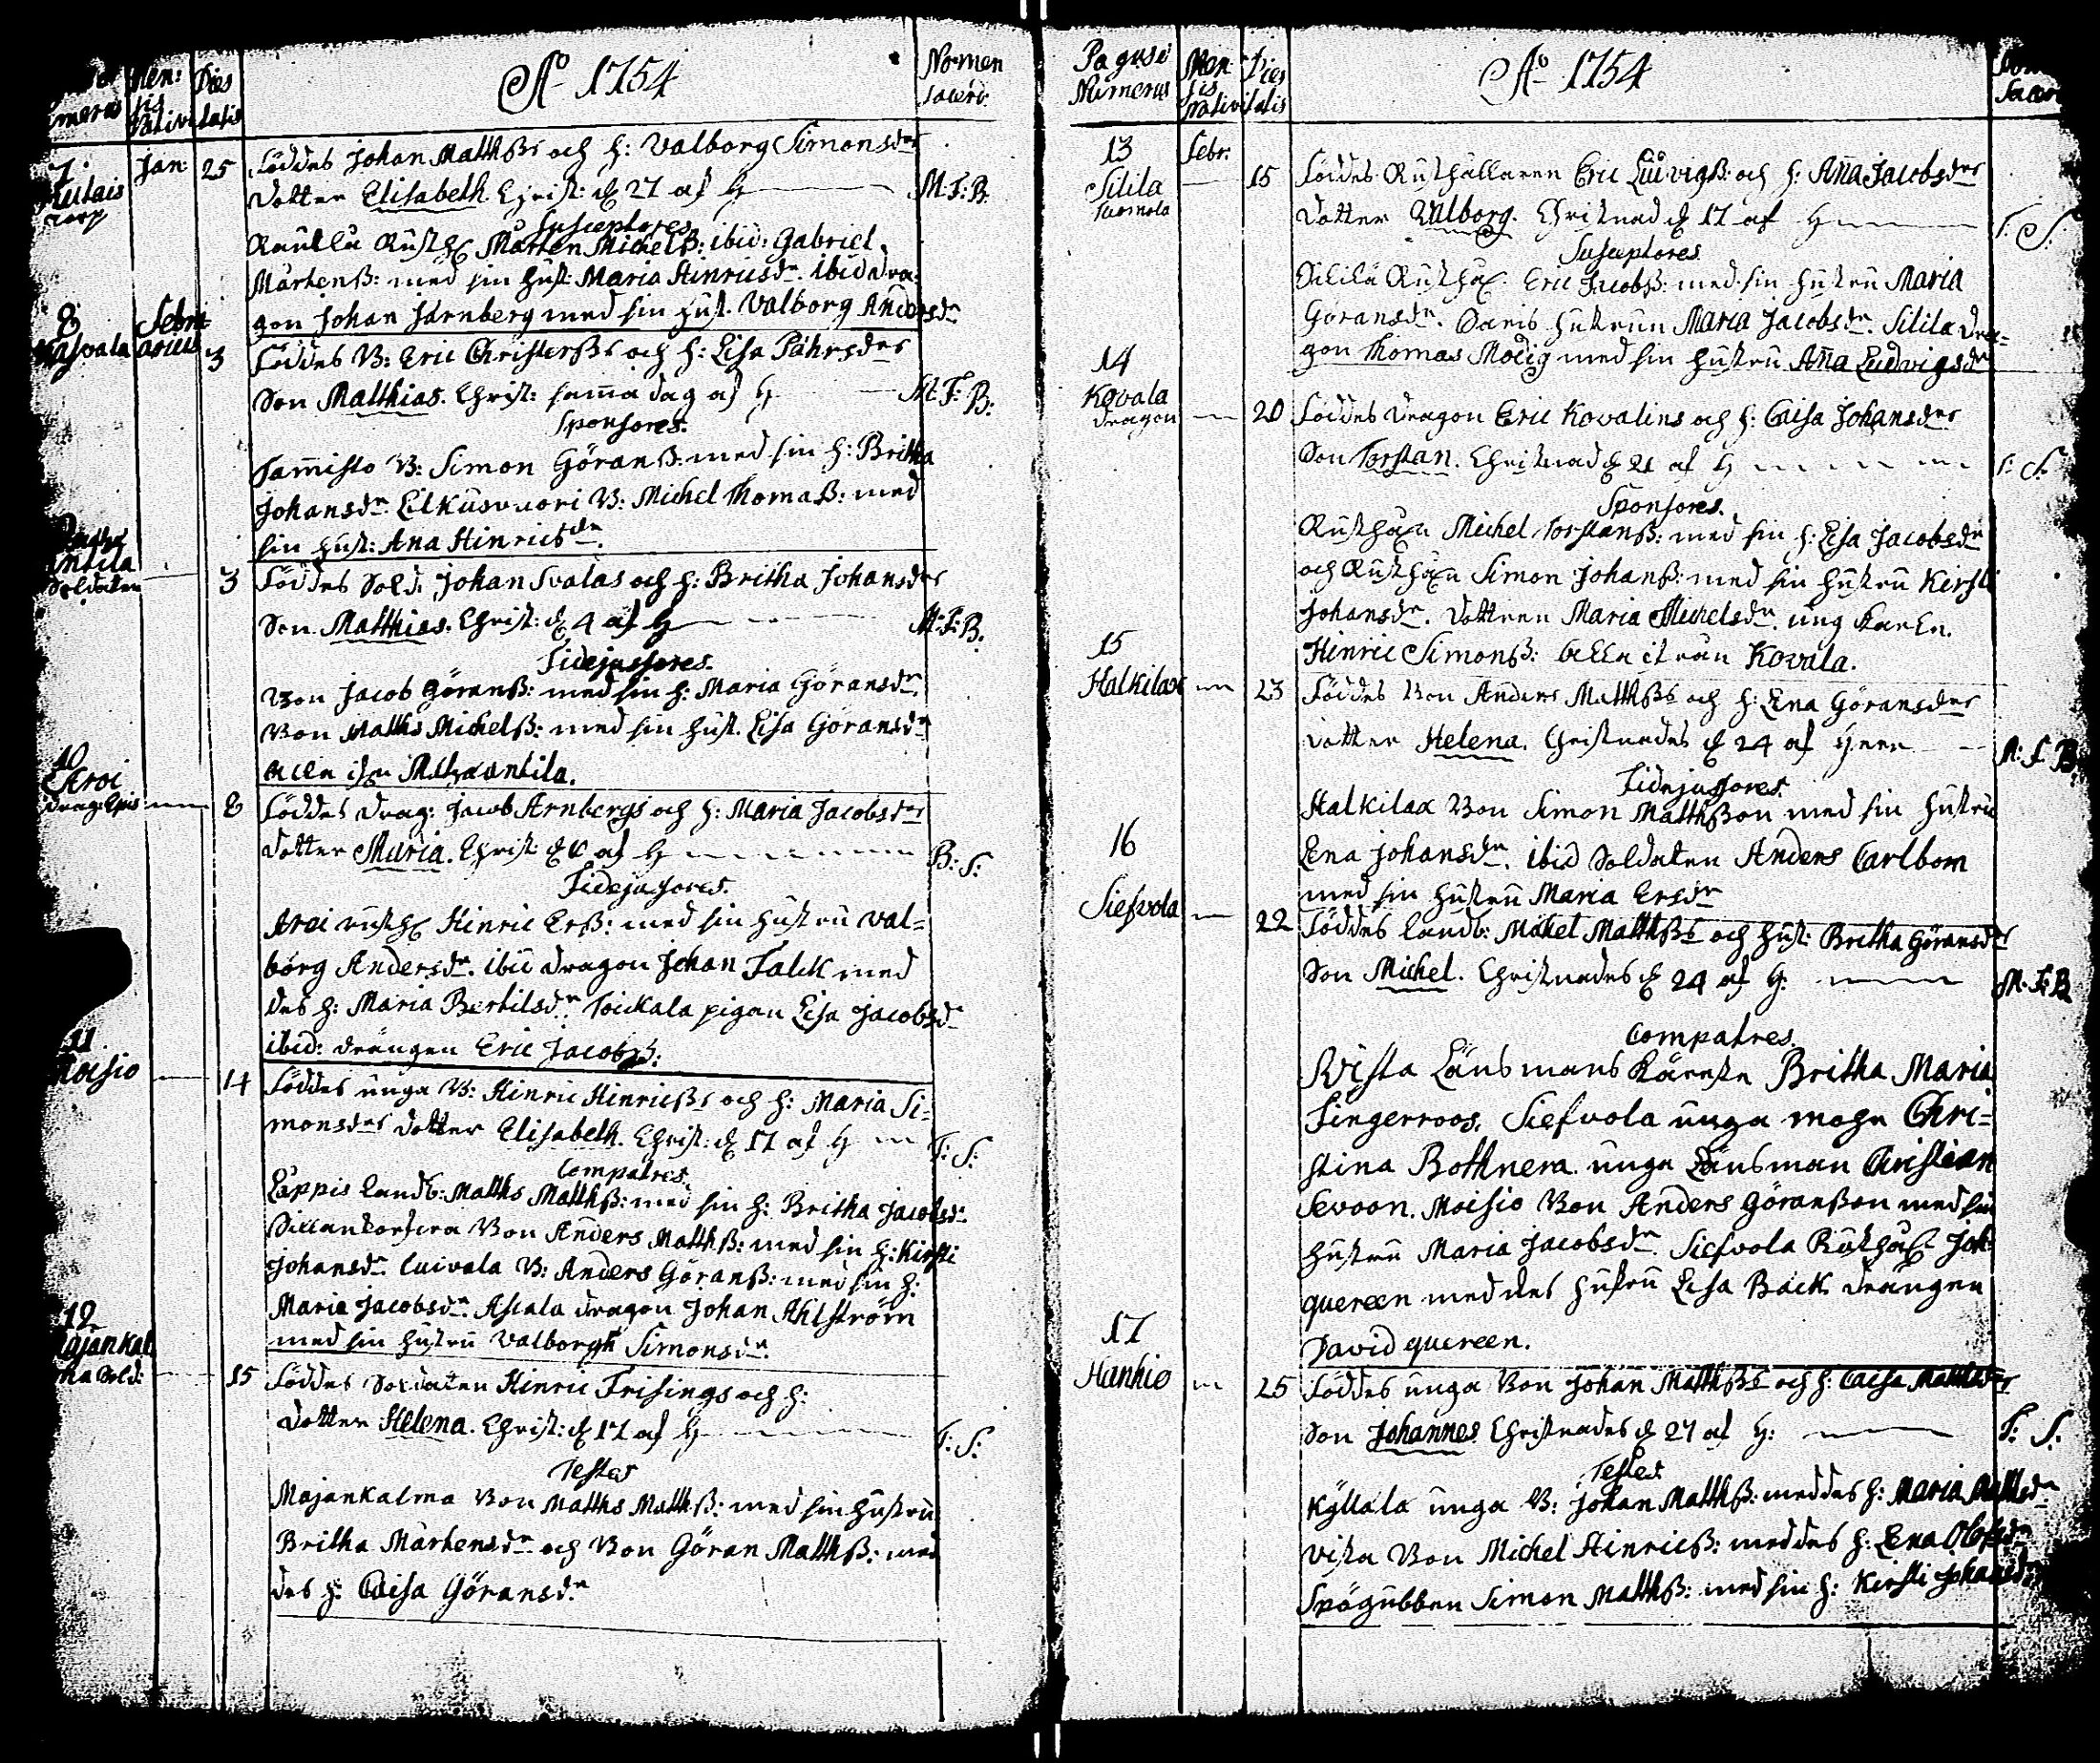 Men: Dies
sis
Nativitatis
Ao 1754
Nomen
Sacerd.
7. Jan 25 Föddes Johan Matthß.s och h: Valborg Simonsd.rs
torp
dotter Elisabeth. Christ: d. 27 af H M: F: B.
Susceptores
Rusth. Mårten Michelß: ibid: Gabriel
Mårtenß: med sin hust. Maria Hinricsd.r ibid dra-
gon Johan Järnberg med sin hust. Valborg Andersd.r
8 Febru
arius 3 Föddes B: Eric Christerß.s och h: Lisa Påhrsd.rs
Son Matthias. Christ: samma dag af H M: F: B:
Sponsores.
Tamisto B: Simon Göranß: med sin h: Britha
Johansd.r Eilkusvuori B: Michel Thomaß: med
sin hust: Ana Hinricsd.r
Soldaten 3 Föddes Sold. Johan Svalas och h: Britha Johansd.rs
Son Matthias. Christ: d. 4 af H M: F: B.
Fidejussores.
Bon Jacob Göranß: med sin h: Maria Göransd.r
Bon Matths Michelß: med sin hust. Lisa Göransd.r
10
Aroi
8 Föddes Drag: Jacob Arnbergs och h: Maria Jacobsd.rs
dotter Maria. Christ: d. af H B: S:
Fidejussores.
Aroi rusth. Hinric Erß: med sin hustru Val-
borg Andersd.r ibid dragon Johan Falck med
des h: Maria Bertilsd.r Toickala pigan Lisa Jacobsd.r
ibid: drängen Eric Jacobß:
11
14 Föddes unga B: Hinric Hinricß.s och h: Maria Si-
monsd.rs dotter Elisabeth. Christ: d. 17 af H F: S:
Compatres.
Lappis Landb: Matths Matthß: med sin h: Britha Jacobsd.r
Bon Anders Matthß: med sin h: Kirsti
Johansd.r Luivala B: Anders Göranß: med sin h:
Maria Jacobsd.r Ascala dragon Johan Ahlström
med sin hustru Valborgh Simonsd.r
12
15 Föddes Soldaten Hinric Frisings och h:
dotter Helena. Christ: d. 17 af H F: S:
Testes
Majankalma Bon Matths Matthß: med sin hustru
Britha Mårtensd.r och Bon Göran Matthß: med
des h: Caisa Göransd.r
Pagus et Men Dies
Numerus sis
Nativitatis
Ao 1754
13 Febr.
Silila 15 Föddes Rusthållaren Eric Ludvigß. och h: Anna Jacobsd.rs
Dotter Valborg. Christnad d. 17 af H F: S:
Susceptores
Silila Rusth. Eric Jacobß: med sin hustru Maria
Göransd.r hustrun Maria Jacobsd.r Silila dra-
gon Thomas Modig med sin hustru Anna Ludvigsd.r
14
Kovala
dragon 20 Föddes dragon Eric Kovalins och h: Caisa Johansd.rs
Son Torstan. Christnad d. 21 af H F: S:
Sponsores.
Michel Torstanß: med sin h: Lisa Jacobsd.r
och Simon Johanß: med sin hustru Kirsti
Johansd.r dottren Maria Michelsd.r ung karlen
Hinric Simonß: alla ifrån Kovala.
15
Halkilax 23 Föddes Bon Anders Matthß.s och h: Lena Göransd.rs
dotter Helena. Christnades d. 24 af Herr M: F: B.
Fidejussores
Halkilax Bon Simon Matthßon med sin hustru
Lena Johansd.r ibid Soldaten Anders Carlbom
med sin hustru Maria Ersd.r
16
Siefvola 22 Föddes Landb: Michel Matthß.s och hust: Britha Göransd.rs
Son Michel. Christnades d. 24 af H: M: F: B
Compatres.
Vista Länsmans Käresta Britha Maria
Fingerroos. Siefvola unga Chri-
stina Bothnera unga Länsman Christian
Sevoon. Moisio Bon Anders Göranßon med sin
hustru Maria Jacobsd.r Siefvola Rusth. Joh:
quereen med des hustru Lisa Bäck drängen
David quereen.
17
Hanhio 25 Föddes unga Bon Johan Matthß.s och h: Caisa Matthsd.rs
Son Johannes Christnades d. 27 af H: F: S:
Testes
Kyllala unga B: Johan Matthß: med des h: Maria Matthsd.r
Vista Bon Michel Hinricß: med des h: Lena Olofsd.r
Spögubben Simon Matthß: med sin h: Kirsti Johansd.r